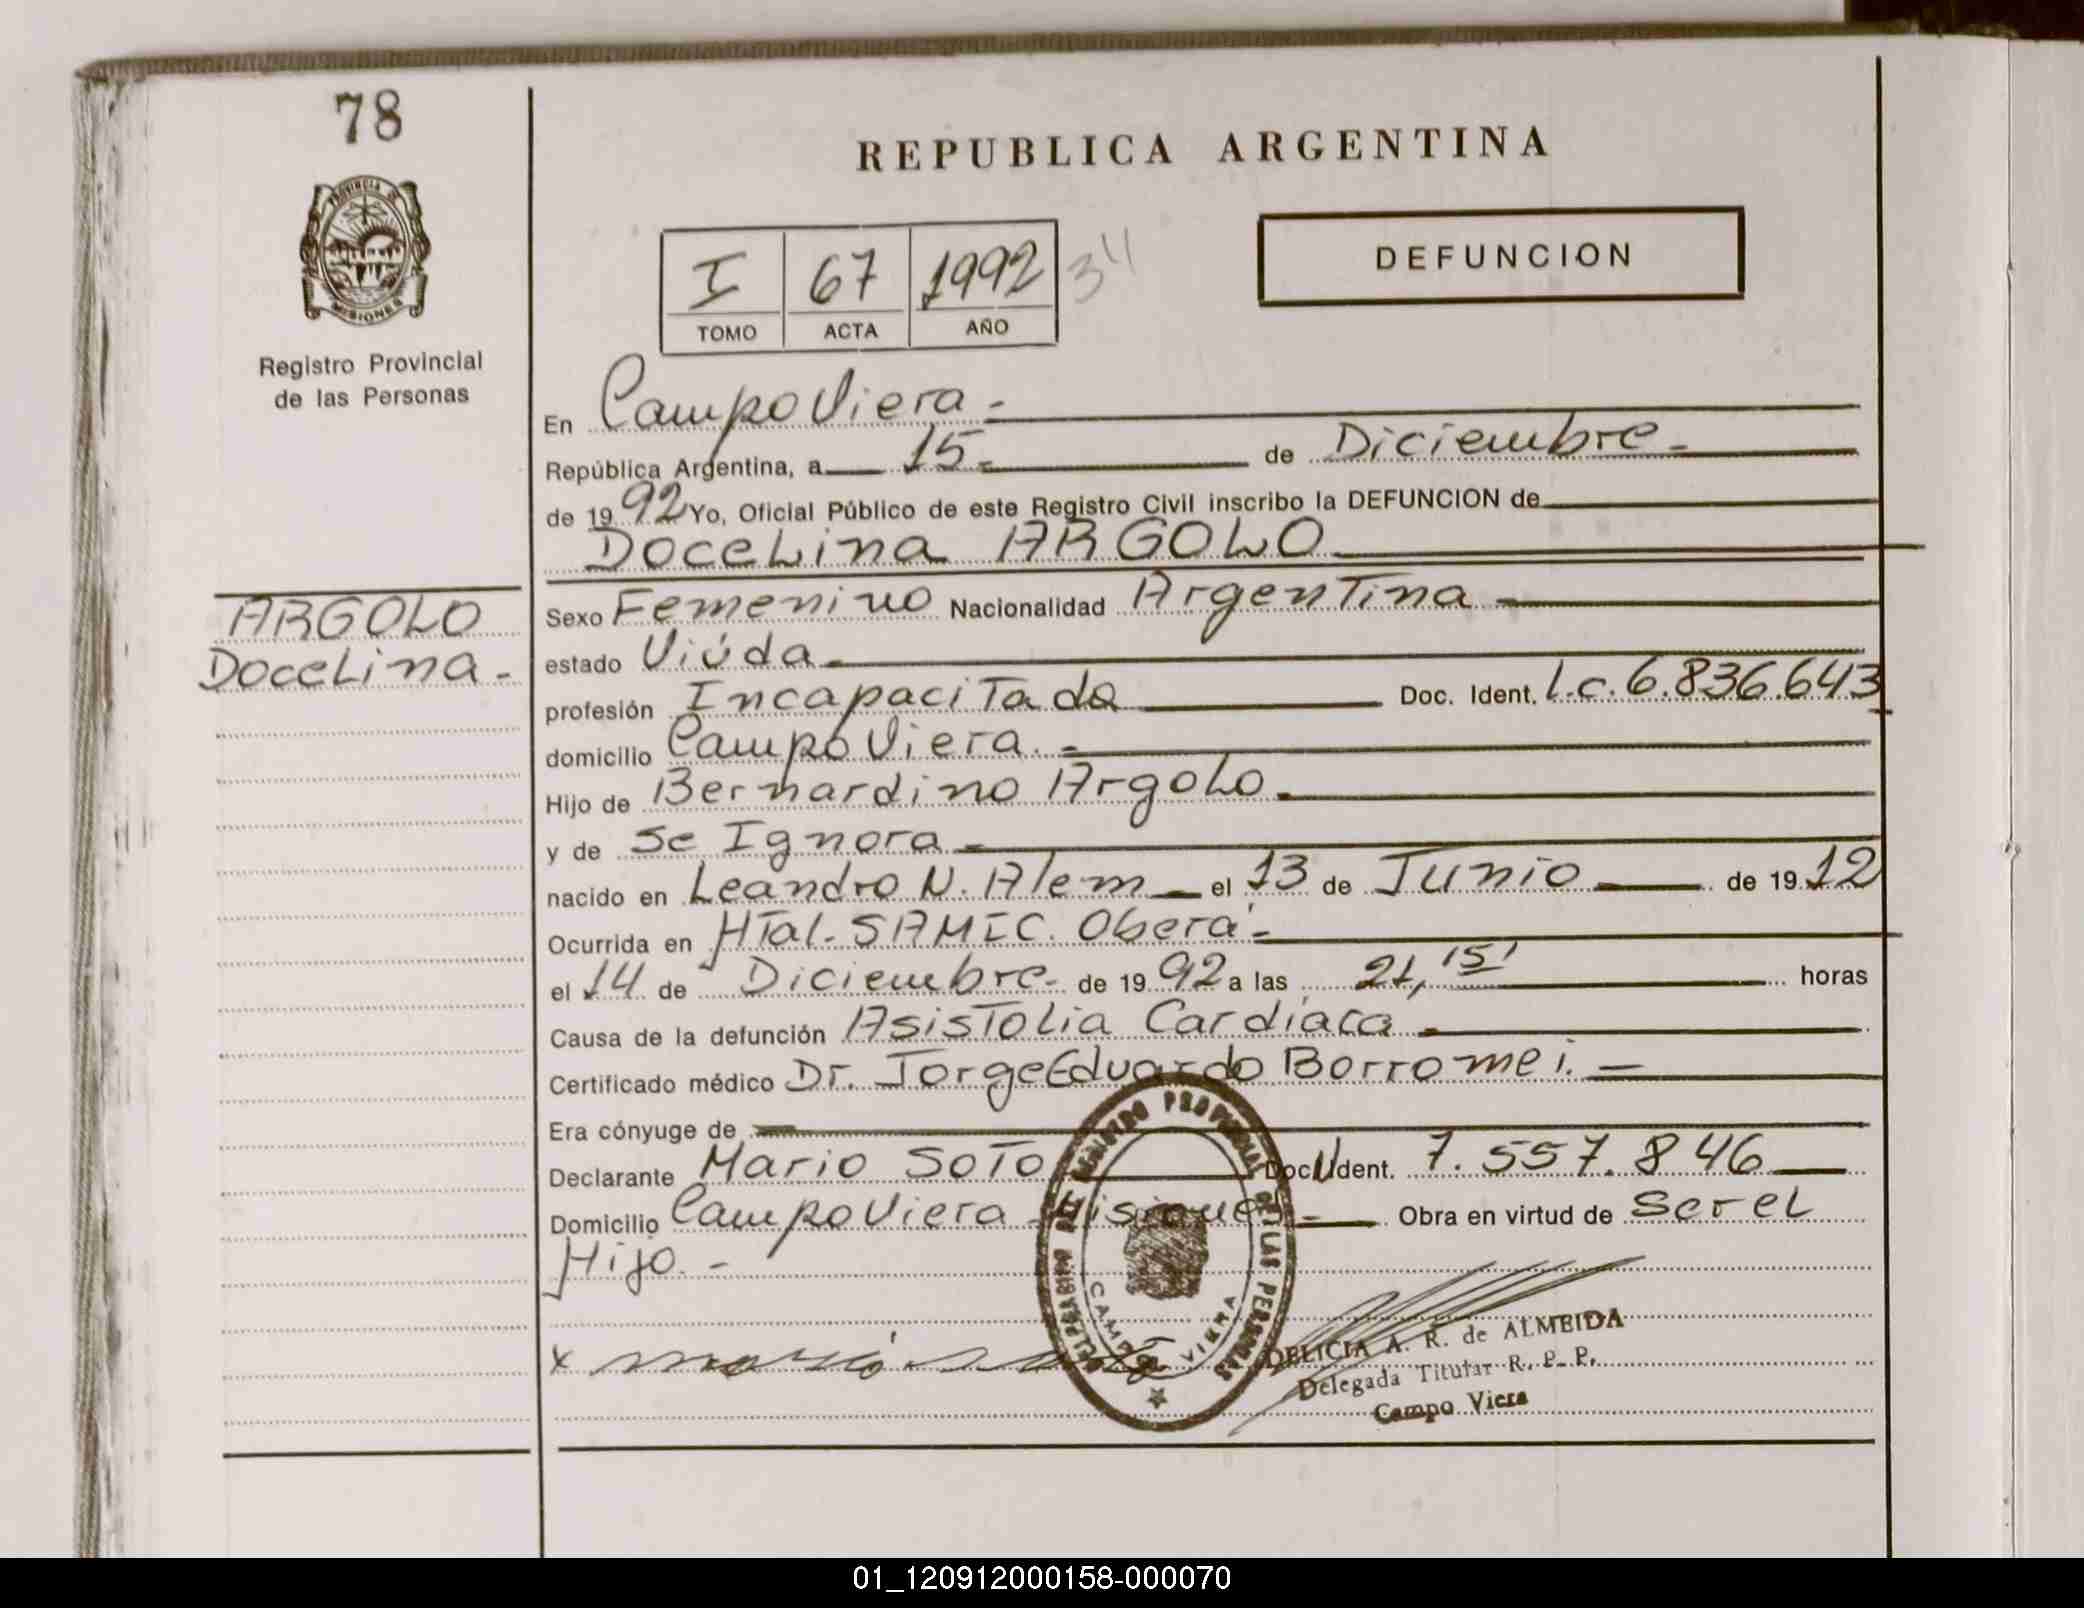 78
PROVINCIA DE
MISIONES
Registro Provincial
de las Personas
ARGOLO
DoceLina -
REPUBLICA ARGENTINA
I 67 1992 34
TOMO ACTA AÑO
DEFUNCION
En Campo Viera -
República Argentina, a 15- de Diciembre-
de 19 92 Yo, Oficial Público de este Registro Civil inscribo la DEFUNCION de
DoceLina ARGOLO
Sexo Femenino Nacionalidad Argentina -
estado Viúda -
profesión Incapacitada Doc. Ident. L.c. 6.836.643
domicilio Campo Viera. -
Hijo de Bernardino Argolo -
y de Se Ignora -
nacido en Leandro N. Alem - el 13 de Junio de 19 12
Ocurrida en HTal. SAMIC. Oberá -
el 14 de Diciembre- de 19 92 a las 21,15' horas
Causa de la defunción Asistolia Cardíaca -
Certificado médico Dr. Jorge Eduardo Borromei. -
Era cónyuge de
Declarante Mario Soto Doc. Ident. 7.557.846
Domicilio Campo Viera - Misiones - Obra en virtud de ser el
Hijo. -
x mario soto
CAMPO VIERA
DELICIA A. R. de ALMEIDA
Delegada Titular R. P. P.
Campo Viera
01_120912000158-000070